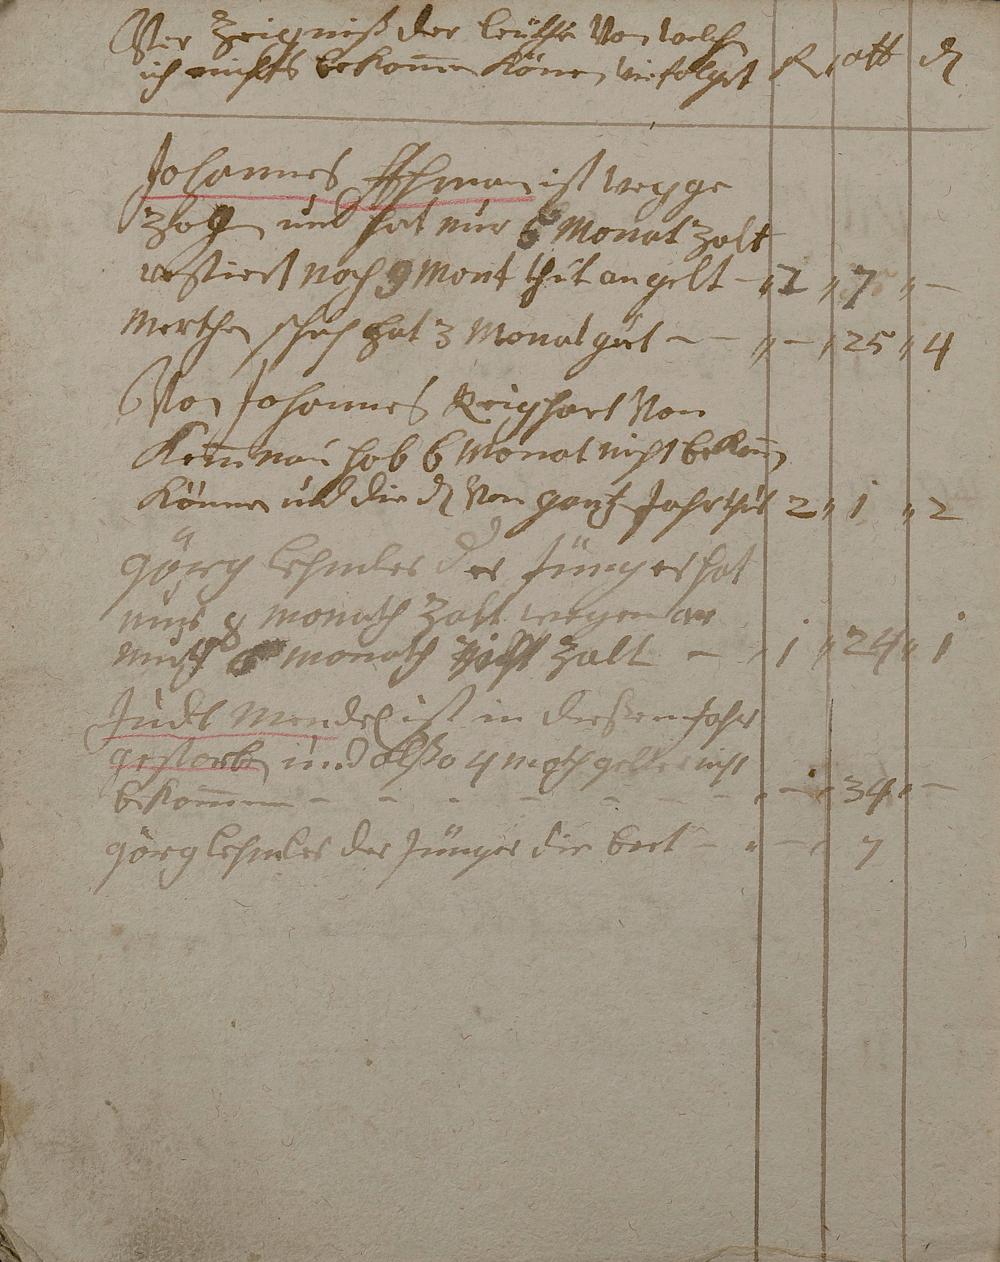 Ver Zeigniß der leüthe Von welch
ich nichts bekomen Könen, wie folget R. alb. d
Johannes Ehman ist wegge
Zog und hat nur 6 Monat Zalt
restiert noch 9 Mont thüt an gelt – " 1 " 7 " –
Merthen schaf hat 3 Monat güt – – " – " 25 " 4
Von Johannes Reighart Von
hab 6 Monat nicht bekom
Könne und die d Von gantz Jahr thüt 2 " 1 " 2
görg lehmles der Jünger hat
8 monath Zalt wegen
monath nicht Zalt – " 1 " 24 " 1
Judt Mendel ist in dießem Jahr
gestorben und alßo 4 moth gelt nicht
bekommen – – – – – – – " – " 34 " –
görg lehmles der Jünger die bert – " – " 7